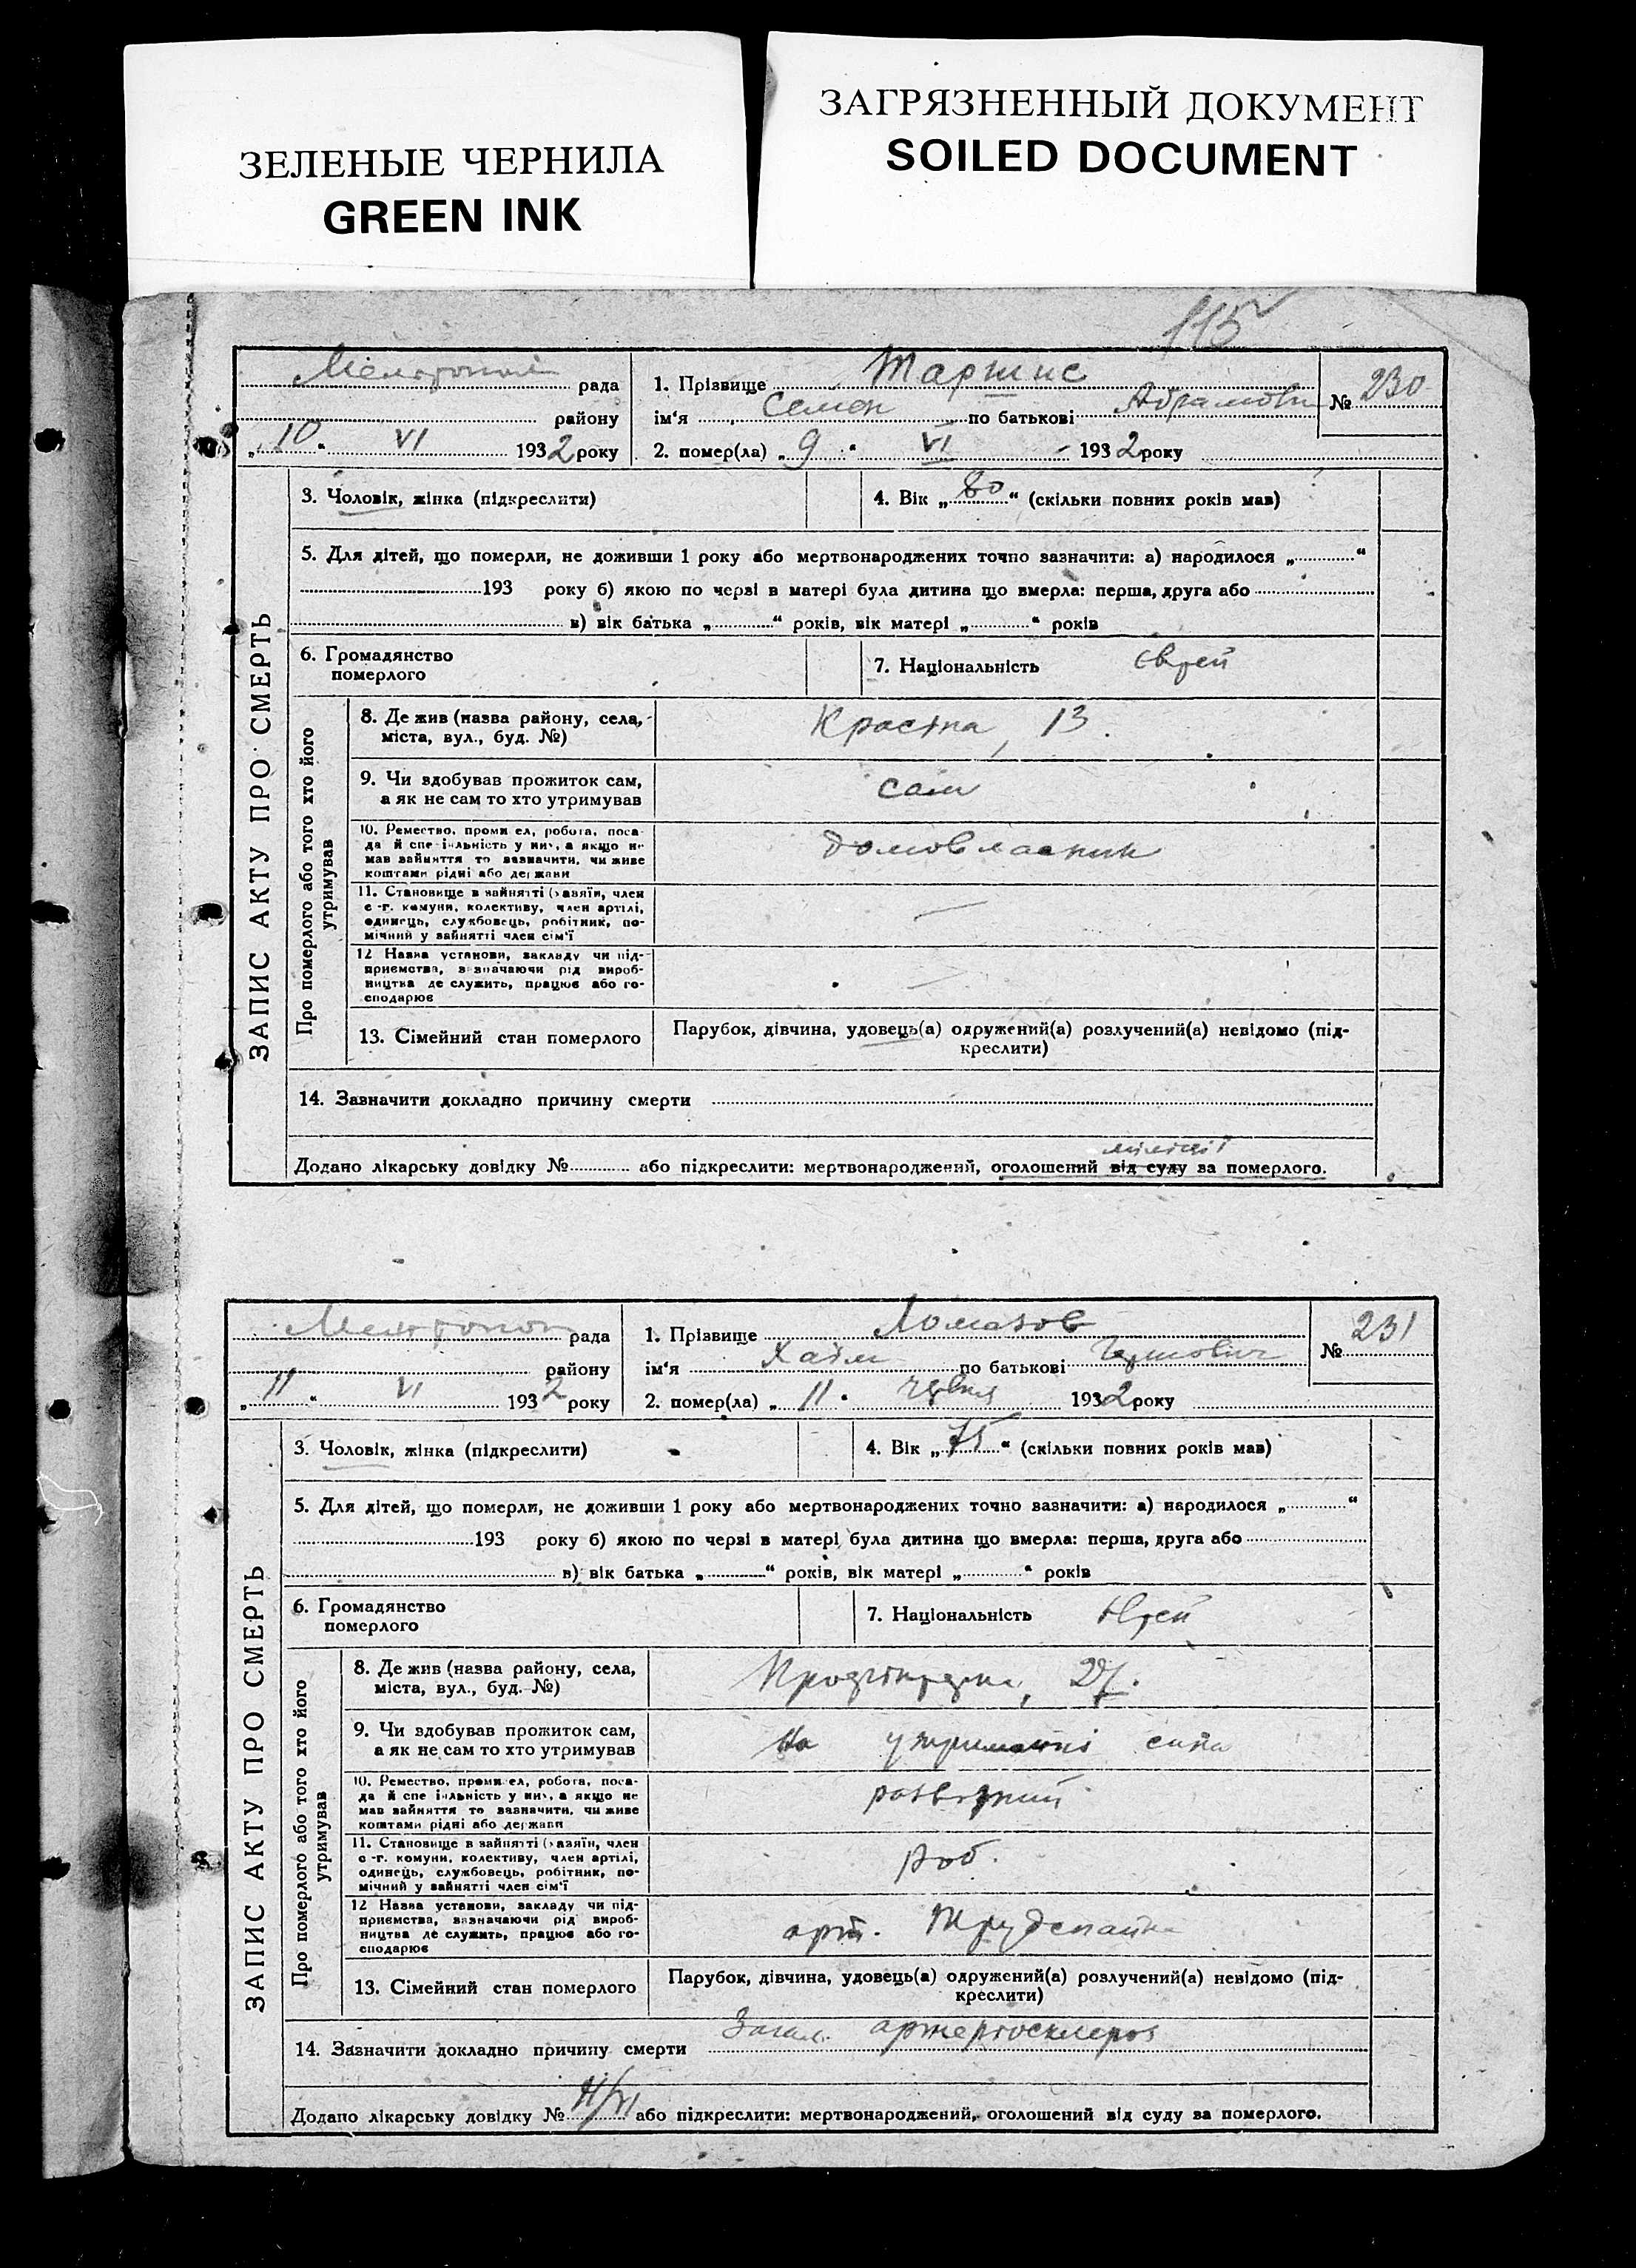 ЗЕЛЕНЫЕ ЧЕРНИЛА
GREEN INK
ЗАГРЯЗНЕННЫЙ ДОКУМЕНТ
SOILED DOCUMENT
115
ЗАПИС АКТУ ПРО СМЕРТЬ
рада
району
„10“ VI 1932 року
1. Прізвище Таршис
ім‘я Семен по батькові Абрамович
№ 230
2. помер(ла) „9“ VI 1932 року
3. Чоловік, жінка (підкреслити)
4. Вік „80“ (скільки повних років мав)
5. Для дітей, що померли, не доживши 1 року або мертвонароджених точно зазначити: а) народилося „ “
193 року б) якою по черзі в матері була дитина що вмерла: перша, друга або
в) вік батька „ “ років, вік матері „ “ років
6. Громадянство
померлого
7. Національність Єврей
Про померлого або того хто його
утримував
8. Де жив (назва району, села,
міста, вул., буд. №)
13.
9. Чи здобував прожиток сам,
а як не сам то хто утримував
сам
10. Ремество, промисел, робота, поса-
да й спеціяльність у них, а якщо не
мав зайняття то зазначити, чи живе
коштами рідні або держави
домовласник
11. Становище в зайнятті (хазяїн, член
с.-г. комуни, колективу, член артілі,
одинець, службовець, робітник, по-
мічний у зайнятті член сім'ї
—
12 Назва установи, закладу чи під-
приємства, зазначаючи рід вироб-
ництва де служить, працює або го-
сподарює
—
13. Сімейний стан померлого
Парубок, дівчина, удовець(а) одружений(а) розлучений(а) невідомо (під-
креслити)
14. Зазначити докладно причину смерти
міліції
Додано лікарську довідку № або підкреслити: мертвонароджений, оголошений від суду за померлого.
ЗАПИС АКТУ ПРО СМЕРТЬ
рада
району
„11“ VI 1932 року
1. Прізвище Ломазов
ім‘я Хаїм по батькові
№ 231
2. помер(ла) „11“ червня 1932 року
3. Чоловік, жінка (підкреслити)
4. Вік „75“ (скільки повних років мав)
5. Для дітей, що померли, не доживши 1 року або мертвонароджених точно зазначити: а) народилося „ “
193 року б) якою по черзі в матері була дитина що вмерла: перша, друга або
в) вік батька „ “ років, вік матері „ “ років
6. Громадянство
померлого
7. Національність Єврей
Про померлого або того хто його
утримував
8. Де жив (назва району, села,
міста, вул., буд. №)
27.
9. Чи здобував прожиток сам,
а як не сам то хто утримував
На утриманні сина
10. Ремество, промисел, робота, поса-
да й спеціяльність у них, а якщо не
мав зайняття то зазначити, чи живе
коштами рідні або держави
11. Становище в зайнятті (хазяїн, член
с.-г. комуни, колективу, член артілі,
одинець, службовець, робітник, по-
мічний у зайнятті член сім'ї
роб.
12 Назва установи, закладу чи під-
приємства, зазначаючи рід вироб-
ництва де служить, працює або го-
сподарює
арт.
13. Сімейний стан померлого
Парубок, дівчина, удовець(а) одружений(а) розлучений(а) невідомо (під-
креслити)
14. Зазначити докладно причину смерти Загал. артеріосклероз
Додано лікарську довідку № 11/VI або підкреслити: мертвонароджений, оголошений від суду за померлого.